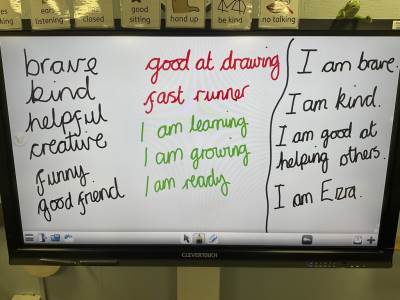 ears
listening
closed
good
sitting
hand up
be kind
no talking
brave
kind
helpful
creative
funny
good friend
good at drawing
fast runner
I am learning
I am growing
I am ready
I am brave.
I am kind.
I am good at
helping others.
I am Ezra.
CLEVERTOUCH